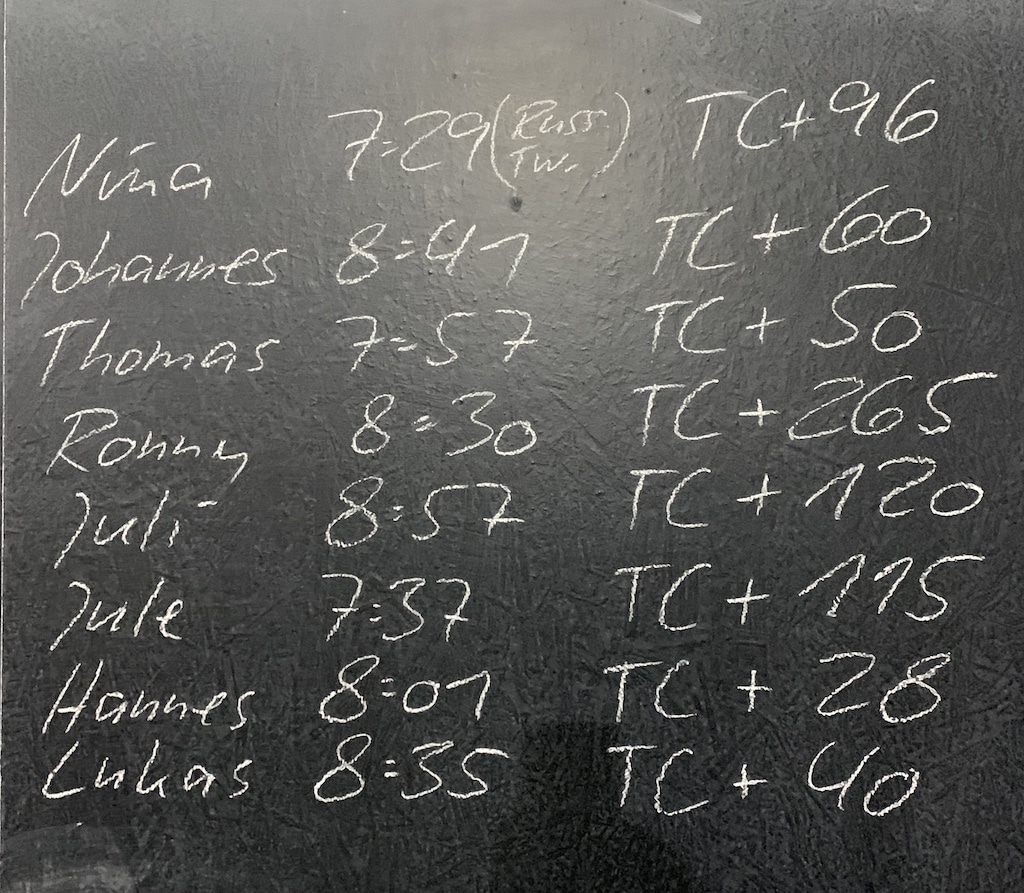 Nina 7:29 (Russ. Tw.) TC+96
Johannes 8:41 TC+60
Thomas 7:57 TC+50
Ronny 8:30 TC+265
Juli 8:57 TC+120
Jule 7:37 TC+115
Hannes 8:01 TC+28
Lukas 8:35 TC+40